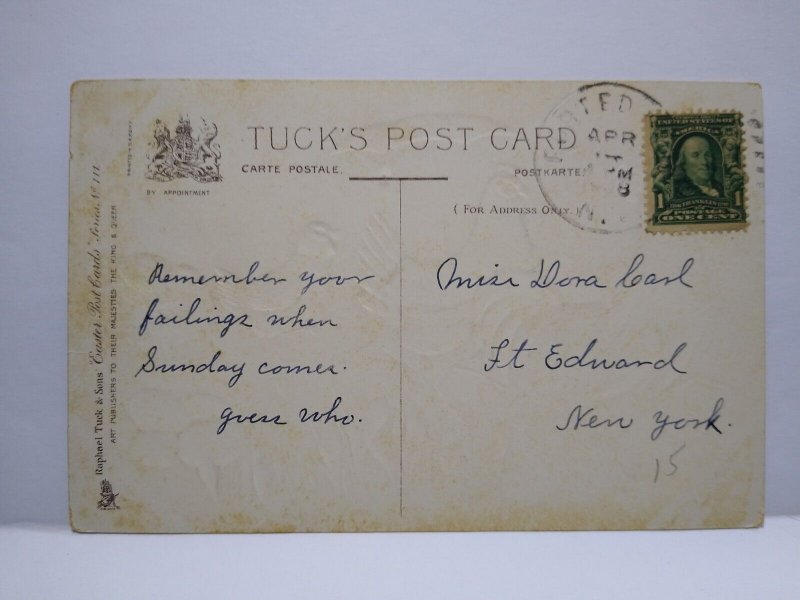 TUCK'S POST CARD
CARTE POSTALE.
POSTKARTE
BY APPOINTMENT
( FOR ADDRESS ONLY. )
APR
UNITED STATES OF
AMERICA
1 FRANKLIN 1
POSTAGE
ONE CENT
Remember your
failings when
Sunday comes.
guess who.
Miss Dora Carl
Ft Edward
New York.
15
Raphael Tuck & Sons' "Easter Post Cards" Series. No 111
ART PUBLISHERS TO THEIR MAJESTIES THE KING & QUEEN